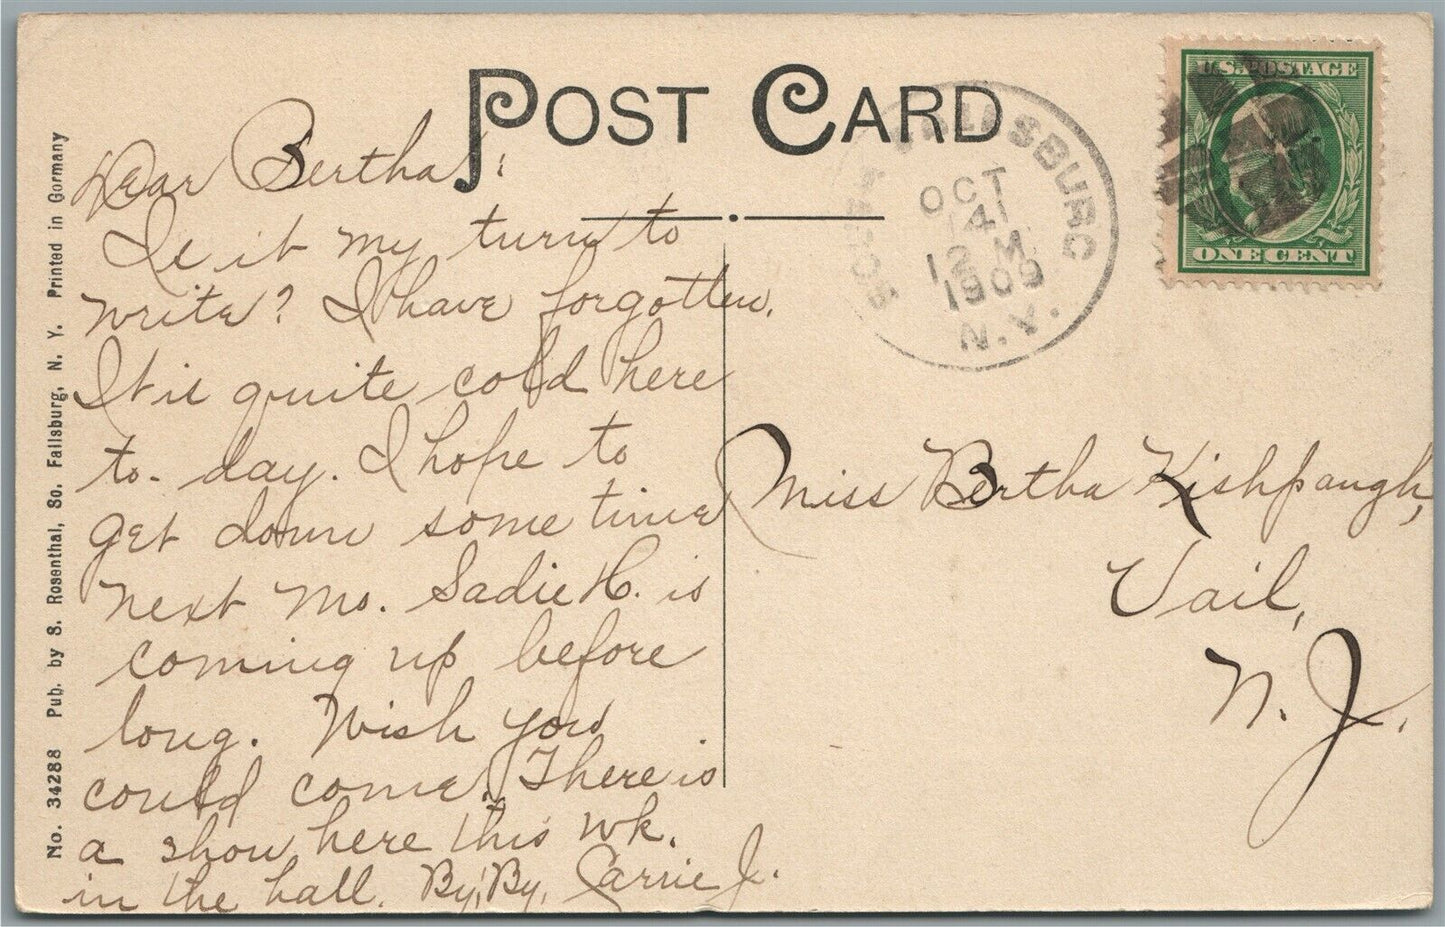 POST CARD
No. 34288 Pub. by S. Rosenthal, So. Fallsburg, N. Y. Printed in Germany
U.S. POSTAGE
ONE CENT
OCT
14
12 M
1909
N.Y.
Dear Bertha:
Is it my turn to
write? I have forgotten.
It is quite cold here
to-day. I hope to
get down some time
next Mo. Sadie H. is
coming up before
long. Wish you
could come. There is
a show here this wk.
in the hall. By, By, Carrie J.
Miss Bertha Kishpaugh,
Vail,
N. J.